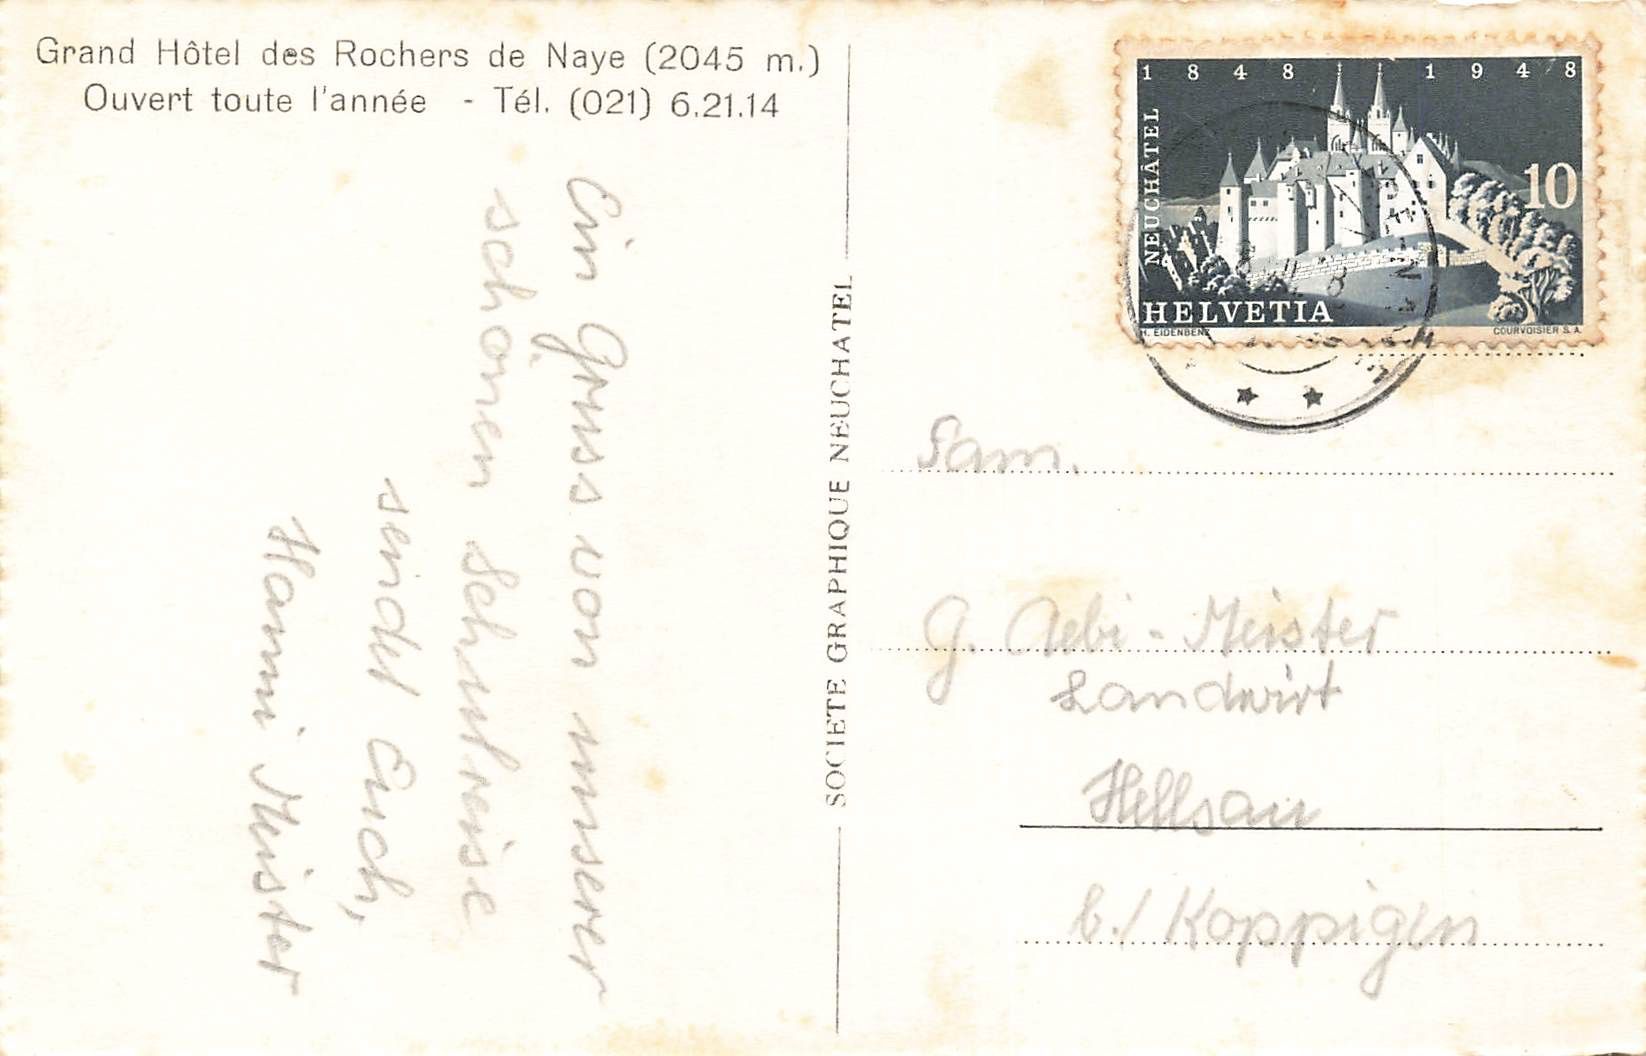 Grand Hôtel des Rochers de Naye (2045 m.)
Ouvert toute l'année - Tél. (021) 6.21.14
Ein Gruss von unserer
schönen Schulreise
sendet Euch,
Hanni Meister
SOCIETE GRAPHIQUE NEUCHATEL
1848 1948
NEUCHÂTEL
10
HELVETIA
H. EIDENBENZ COURVOISIER S.A.
Fam.
G. Aebi-Meister
Landwirt
Hellsau
b./ Koppigen